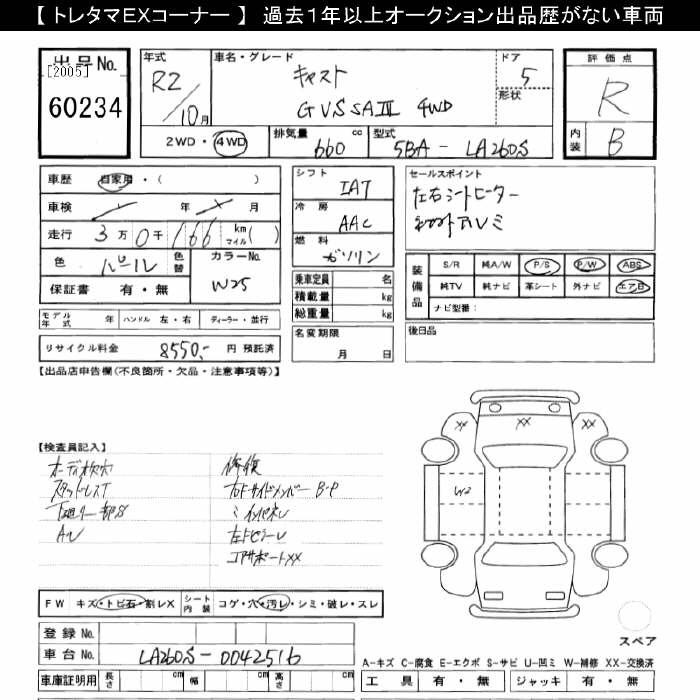 【 トレタマEXコーナー 】 過去1年以上オークション出品歴がない車両
出品No.
[2005]
60234
年式
R2/10月
車名・グレード
キャスト
G VS SAⅢ 4WD
ドア
5
形状
評価点
R
内装
B
2WD・4WD
排気量 660 cc
型式 5BA-LA260S
車歴 自家用・( )
車検 年 月
走行 3万0千166 km マイル( )
色 パール 色替
カラーNo. W25
保証書 有・無
シフト IAT
冷房 AAC
燃料 ガソリン
乗車定員 名
積載量 kg
総重量 kg
名変期限 月 日
セールスポイント
左右シートヒーター
アルミ
装備品
S/R 純A/W P/S P/W ABS
純TV 純ナビ 革シート 外ナビ エアB
ナビ型番:
後日品
モデル年式 年 ハンドル 左・右 ディーラー・並行
リサイクル料金 8550,- 円 預託済
【出品店申告欄(不良箇所・欠品・注意事項等)】
【検査員記入】
スタッドレスT
修復
右F.サイドメンバー B・P
〃インパネ
左Fピラー
コアサポートXX
XX XX XX
W2
FW キズ・トビ石・割レX シート内装 コゲ・穴・汚レ・シミ・破レ・スレ
登録No.
車台No. LA260S-0042516
車庫証明用 長さ cm 幅 cm 高さ cm
スペア
A-キズ C-腐食 E-エクボ S-サビ U-凹ミ W-補修 XX-交換済
工具 有・無 ジャッキ 有・無